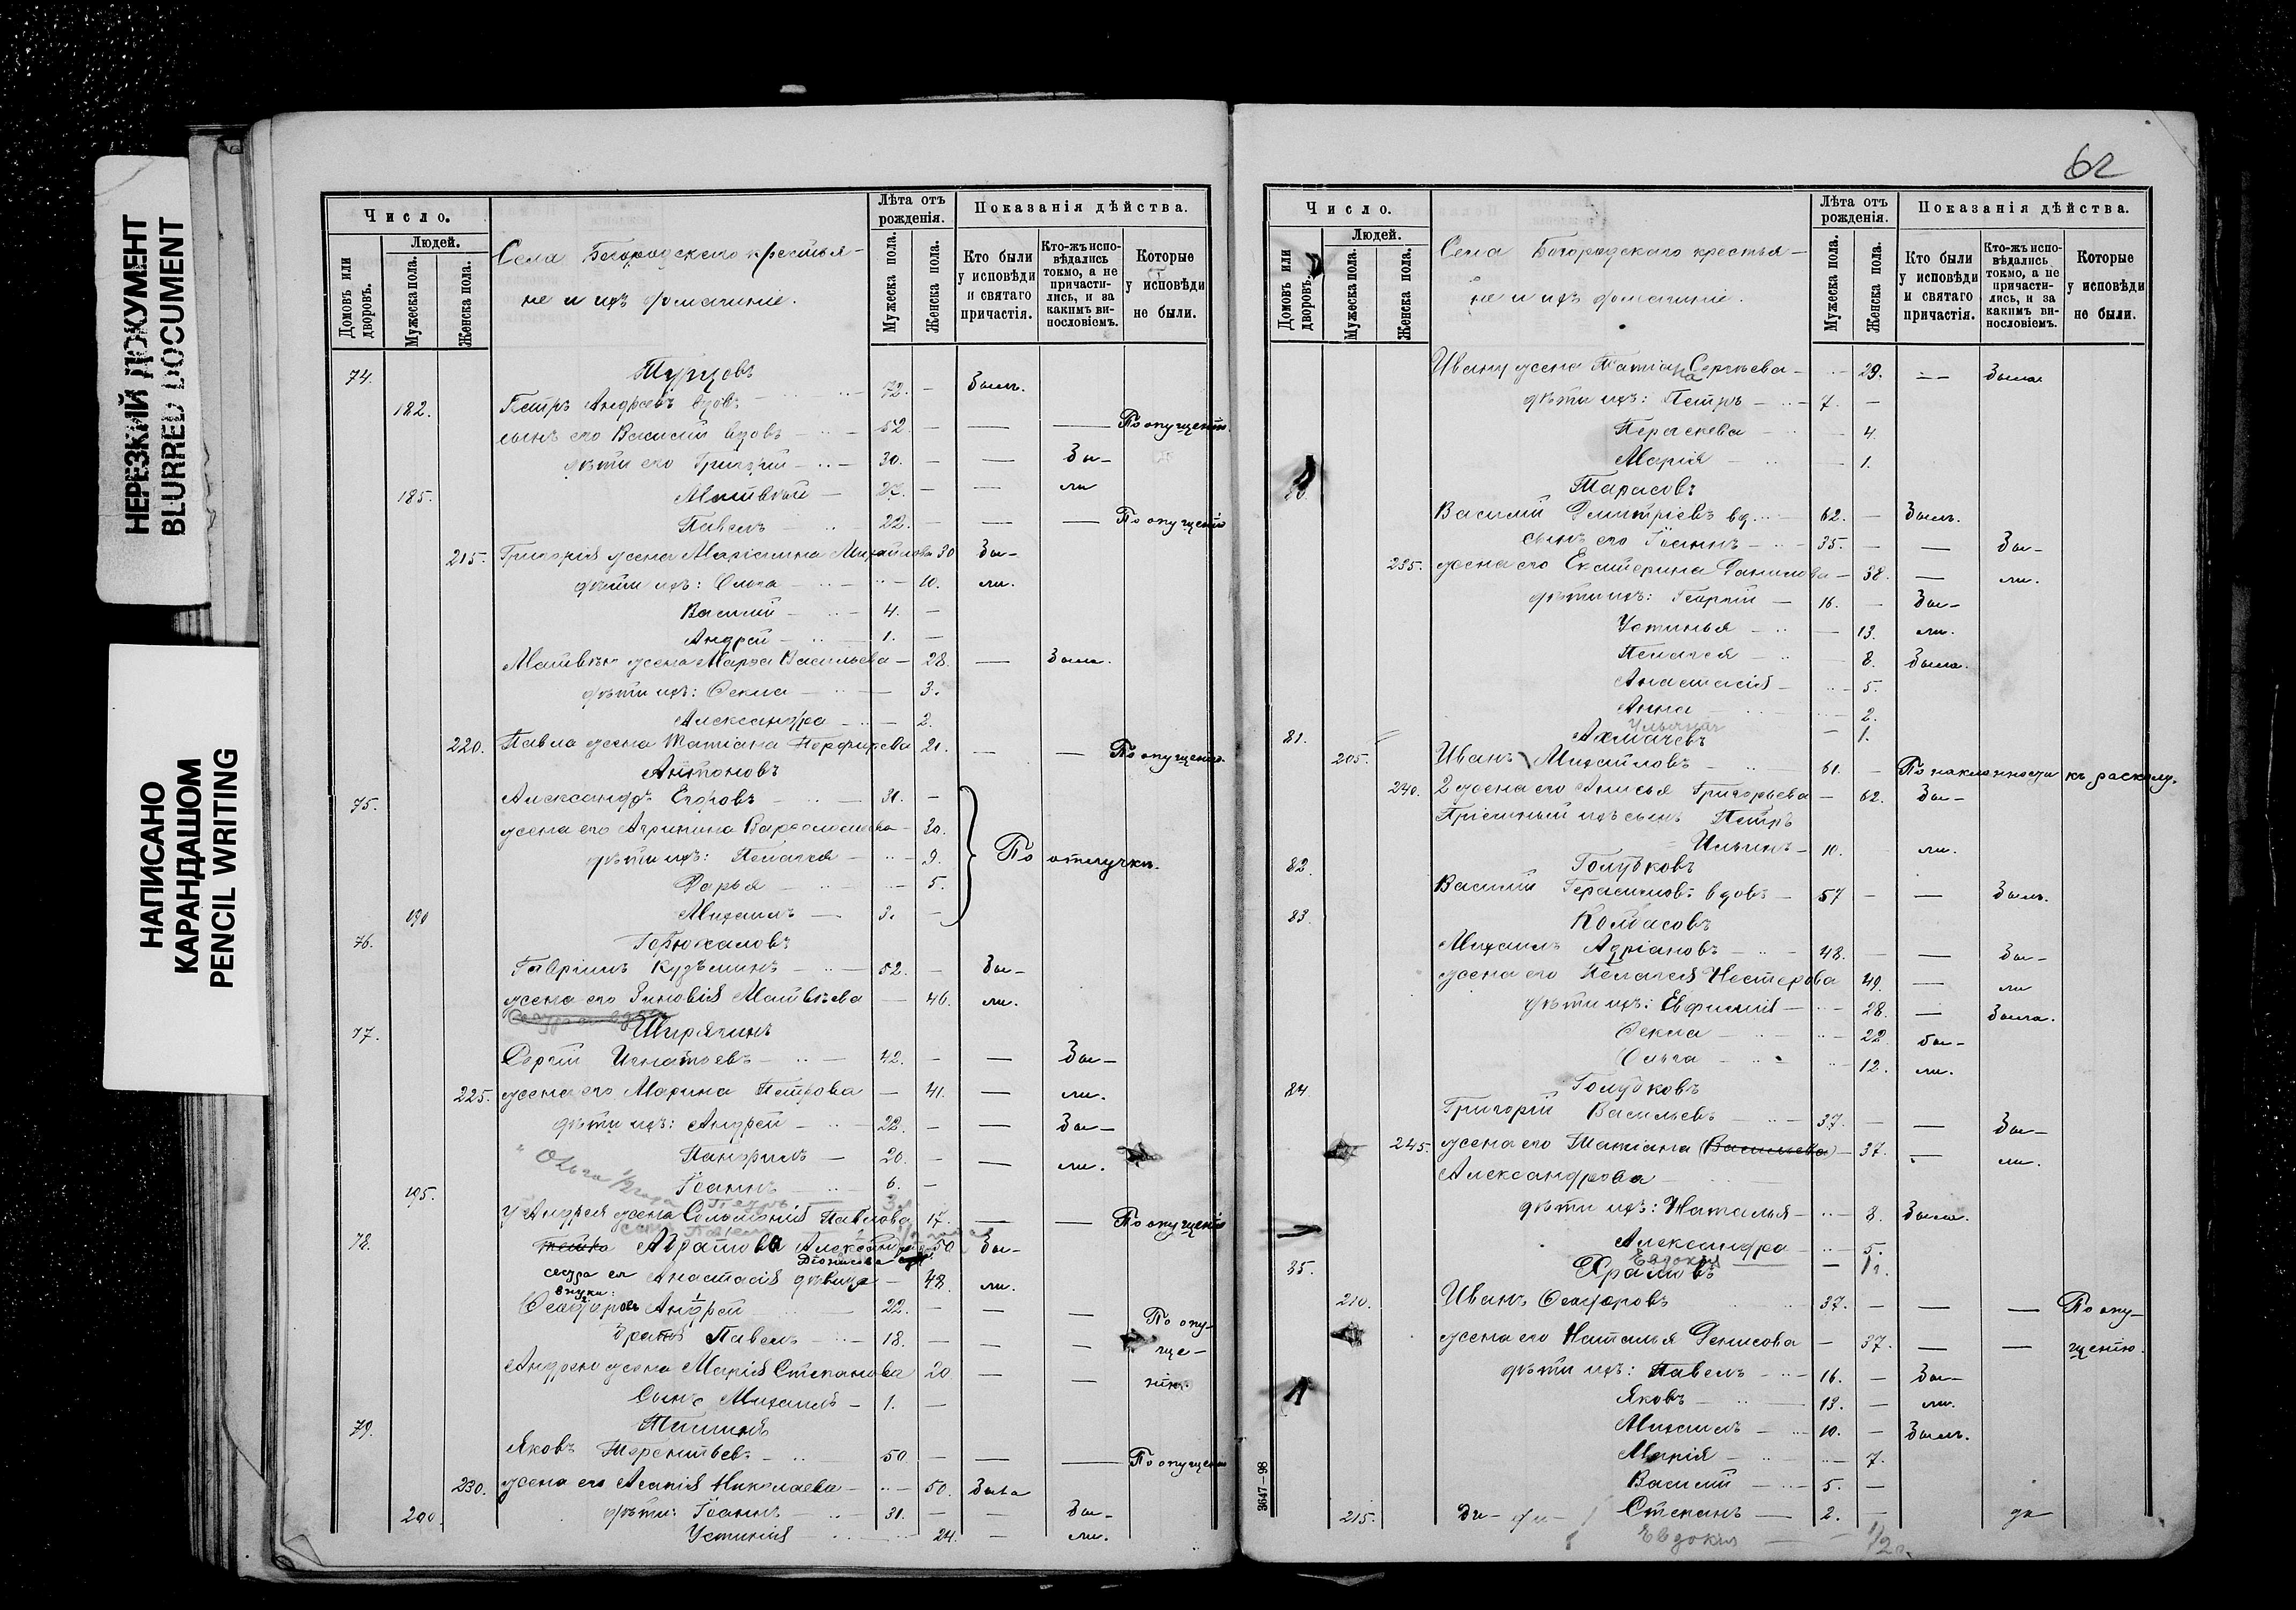 НЕРЕЗКИЙ ДОКУМЕНТ
BLURRED DOCUMENT
НАПИСАНО
КАРАНДАШОМ
PENCIL WRITING
Число.
Людей.
Домовъ или дворовъ.
Мужеска пола.
Женска пола.
Села Богородскаго крестья-
не и ихъ домашніе.
Лѣта отъ рожденія.
Мужеска пола.
Женска пола.
Показанія дѣйства.
Кто были у исповѣди и святаго причастія.
Кто-жъ испо-вѣдались токмо, а не причасти-лись, и за какимъ ви-нословіемъ.
Которые у исповѣди не были.
74. Турцовъ
182. Петръ Андреевъ вдовъ 72. — Былъ.
сынъ его Василій вдовъ 52 — — — По опущенію.
дѣти его Григорій 30. — — Бы-
185. Матвѣй — — ли
Павелъ 22. — — — По опущенію
215. Григорія жена Маріамна Михайлова 30 Бы-
дѣти ихъ: Ольга 10. ли.
Василій 4. —
Андрей 1. —
Матвѣя жена Марѳа Васильева 28. — Была.
дѣти ихъ: Ѳекла 3.
Александра 2.
220. Павла жена Татіана Порфирьева 21. — — По опущенію.
Антоновъ
75. Александръ Егоровъ 31. —
жена его Агрипина Варѳоломеева 30.
дѣти ихъ: Пелагея 9. По отлучкѣ.
Дарья 5.
190 Михаилъ 3. —
76.
Гавріилъ Кузьминъ 52. — Бы-
жена его Зиновія Матвѣева — 46. ли.
77. Ширячинъ
Сергій Игнатьевъ 42. — — Бы-
225. жена его Марина Петрова — 41. — ли.
дѣти ихъ: Андрей 22. — — Бы-
Панфилъ 20. — — ли.
Ольга 1/2 года
195. Іоаннъ 6. —
Андрея жена Соломонія Павлова 17. — — По опущенію
78. Абрамова 50 Бы-
Діонисова
сестра ея Анастасія дѣвица — 48. ли.
внуки:
Андрей 22. — — — По опу-
Павелъ 18. — — ще-
Андрея жена Марія Степанова 20 — — нію.
Сынъ Михаилъ 1. —
79.
Яковъ Терентьевъ 50 — — — По опущенію
230. жена его Агапія Николаева 50. Была
200. дѣти: Іоаннъ 31. — — Бы-
Устинія 24. — ли.
62
Число.
Людей.
Домовъ или дворовъ.
Мужеска пола.
Женска пола.
Села Богородскаго крестья-
не и ихъ домашніе.
Лѣта отъ рожденія.
Мужеска пола.
Женска пола.
Показанія дѣйства.
Кто были у исповѣди и святаго причастія.
Кто-жъ испо-вѣдались токмо, а не причасти-лись, и за какимъ ви-нословіемъ.
Которые у исповѣди не были.
Ивана жена Татіана Сергѣева 29. — Была
дѣти ихъ: Петръ 7. —
Параскева — 4.
Марія — 1.
Тарасовъ
Василій Димитріевъ вд. 62. — Былъ.
сынъ его Іоаннъ 35. — — Бы-
235. жена его Екатерина Данилова — 38. — ли.
дѣти ихъ: Георгій 16. — Бы-
Устинья — 13. ли.
Пелагея — 8. Была.
Анастасія 5.
Анна 2.
— 1.
81. Ахмачевъ
205. Иванъ Михайловъ 61. — По наклонности къ расколу.
240. 2 жена его Анисья Григорьева — 62. Бы-
Пріемный ихъ сынъ Петръ
Ильинъ 10. ли.
82. Голубковъ
Василій Герасимовъ вдовъ 57 — — Былъ.
83. Колбасовъ
Михаилъ Адріановъ 48. — — Бы-
жена его Пелагея Нестерова 49. — ли
дѣти ихъ: Евфимія 28. — Была.
Ѳекла 22 бы-
Ольга 12. ли.
84 Голубковъ
Григорій Васильевъ 37. — — Бы-
245. жена его Татіана (Васильева) 37. — ли.
Александрова
дѣти ихъ: Наталья 8. Была.
Александра 5.
Евдокія
85. Храмовъ
210. Иванъ Ѳеодоровъ 37. — — — По опу-
жена его Наталья Денисова — 37. — — щенію.
дѣти ихъ: Павелъ 16. — Бы-
Яковъ 13. — ли.
Михаилъ 10. — Былъ.
Марія 7.
Василій 5. —
215. Степанъ 2. —
Евдокія — 1/2
3647—98